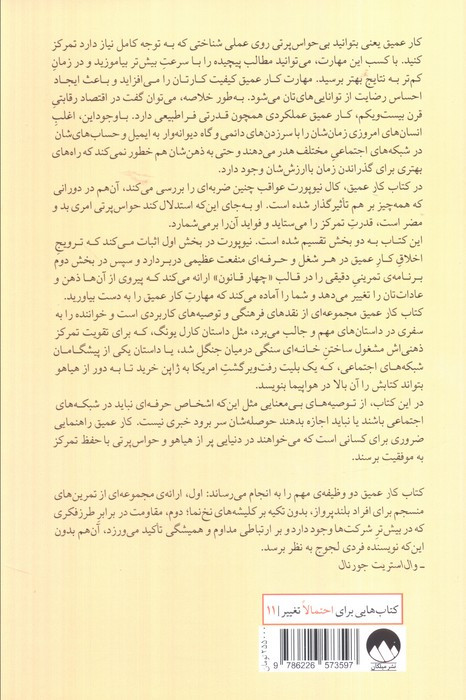 کار عمیق یعنی بتوانید بی‌حواس‌پرتی روی عملی شناختی که به توجه کامل نیاز دارد تمرکز
کنید. با کسب این مهارت، می‌توانید مطالب پیچیده را با سرعتِ بیش‌تر بیاموزید و در زمانِ
کم‌تر به نتایج بهتر برسید. مهارت کار عمیق کیفیت کارتان را می‌افزاید و باعث ایجاد
احساس رضایت از توانایی‌های‌تان می‌شود. به‌طور خلاصه، می‌توان گفت در اقتصاد رقابتیِ
قرن بیست‌ویکم، کار عمیق عملکردی همچون قدرتی فراطبیعی دارد. باوجوداین، اغلبِ
انسان‌های امروزی زمان‌شان را با سرزدن‌های دائمی و گاه دیوانه‌وار به ایمیل و حساب‌های‌شان
در شبکه‌های اجتماعیِ مختلف هدر می‌دهند و حتی به ذهن‌شان هم خطور نمی‌کند که راه‌های
بهتری برای گذراندن زمان باارزش‌شان وجود دارد.
در کتاب کار عمیق، کال نیوپورت عواقب چنین ضربه‌ای را بررسی می‌کند، آن‌هم در دورانی
که همه‌چیز بر هم تأثیرگذار شده است. او به‌جای این‌که استدلال کند حواس‌پرتی امری بد و
مضر است، قدرتِ تمرکز را می‌ستاید و فواید آن را برمی‌شمارد.
این کتاب به دو بخش تقسیم شده است. نیوپورت در بخش اول اثبات می‌کند که ترویجِ
اخلاقِ کارِ عمیق در هر شغل و حرفه‌ای منفعت عظیمی دربردارد و سپس در بخش دوم
برنامه‌ی تمرینیِ دقیقی را در قالب «چهار قانون» ارائه می‌کند که پیروی از آن‌ها ذهن و
عادات‌تان را تغییر می‌دهد و شما را آماده می‌کند که مهارتِ کار عمیق را به دست بیاورید.
کتاب کار عمیق مجموعه‌ای از نقدهای فرهنگی و توصیه‌های کاربردی است و خواننده را به
سفری در داستان‌های مهم و جالب می‌برد، مثل داستان کارل یونگ، که برای تقویت تمرکز
ذهنی‌اش مشغول ساختنِ خانه‌ای سنگی درمیان جنگل شد، یا داستان یکی از پیشگامان
شبکه‌های اجتماعی، که یک بلیت رفت‌وبرگشتِ امریکا به ژاپن خرید تا به دور از هیاهو
بتواند کتابش را آن بالا در هواپیما بنویسد.
در این کتاب، از توصیه‌های بی‌معنایی مثل این‌که اشخاص حرفه‌ای نباید در شبکه‌های
اجتماعی باشند یا نباید اجازه بدهند حوصله‌شان سر برود خبری نیست. کار عمیق راهنمایی
ضروری برای کسانی است که می‌خواهند در دنیایی پر از هیاهو و حواس‌پرتی با حفظ تمرکز
به موفقیت برسند.
کتاب کار عمیق دو وظیفه‌ی مهم را به انجام می‌رساند: اول، ارائه‌ی مجموعه‌ای از تمرین‌های
منسجم برای افراد بلندپرواز، بدون تکیه بر کلیشه‌های نخ‌نما؛ دوم، مقاومت در برابر طرزفکری
که در بیش‌ترِ شرکت‌ها وجود دارد و بر ارتباطیِ مداوم و همیشگی تأکید می‌ورزد، آن‌هم بدون
این‌که نویسنده فردی لجوج به نظر برسد.
ـ وال‌استریت جورنال
کتاب‌هایی برای احتمالاً تغییر | ۱۱
۲۵۵۰۰۰ تومان
9 786226 573597
نشر میلکان